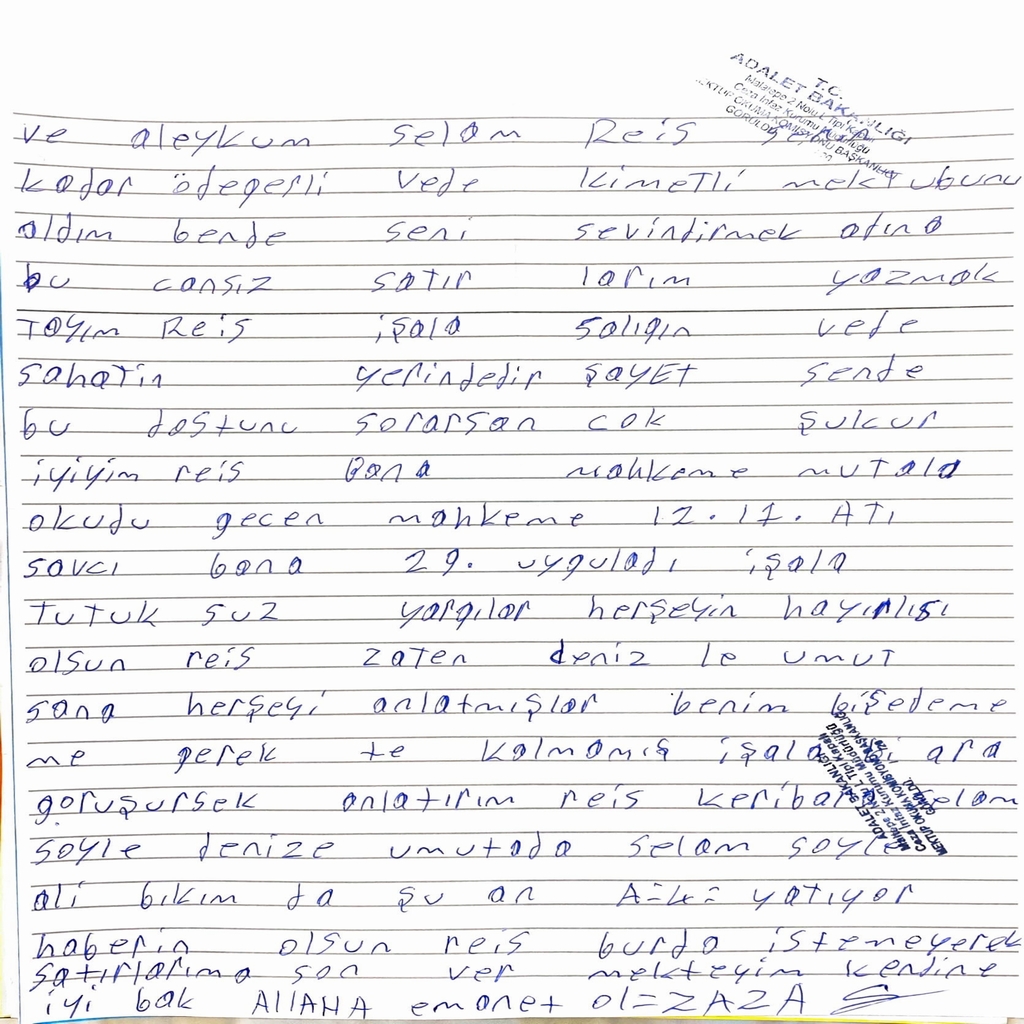 T.C.
ADALET BAKANLIĞI
Maltepe 2 Nolu L Tipi Kapalı
Ceza İnfaz Kurumu Müdürlüğü
MEKTUP OKUMA KOMİSYONU BAŞKANLIĞI
GÖRÜLDÜ
ve aleykum selam Reis
kadar ödegerli vede kimetli mektubunu
aldım bende seni sevindirmek adına
bu cansız satır larım yazmak
TAYım Reis işala salıgın vede
sahaTin yerindedir şayet sende
bu dostunu sorarsan cok şukur
iyiyim reis Bana mahkeme muTala
okudu gecen mahkeme 12.11. ATı
savcı bana 29. uyguladı işala
TuTuk suz yargılar herşeyin hayırlısı
olsun reis zaten deniz le umuT
sana herşeyi anlatmışlar benim bişedeme
me gerek te kalmamış işala bi ara
goruşursek anlatırım reis keribar selam
soyle denize umutada selam soyle
ali bıkım da şu an A=4= yatıyor
haberin olsun reis burda istemeyerek
satırlarıma son ver mekteyim kendine
iyi bak AllAHA emanet ol=ZAZA
ADALET BAKANLIĞI
Maltepe 2 Nolu L Tipi Kapalı
Ceza İnfaz Kurumu Müdürlüğü
MEKTUP OKUMA KOMİSYONU BAŞKANLIĞI
GÖRÜLDÜ